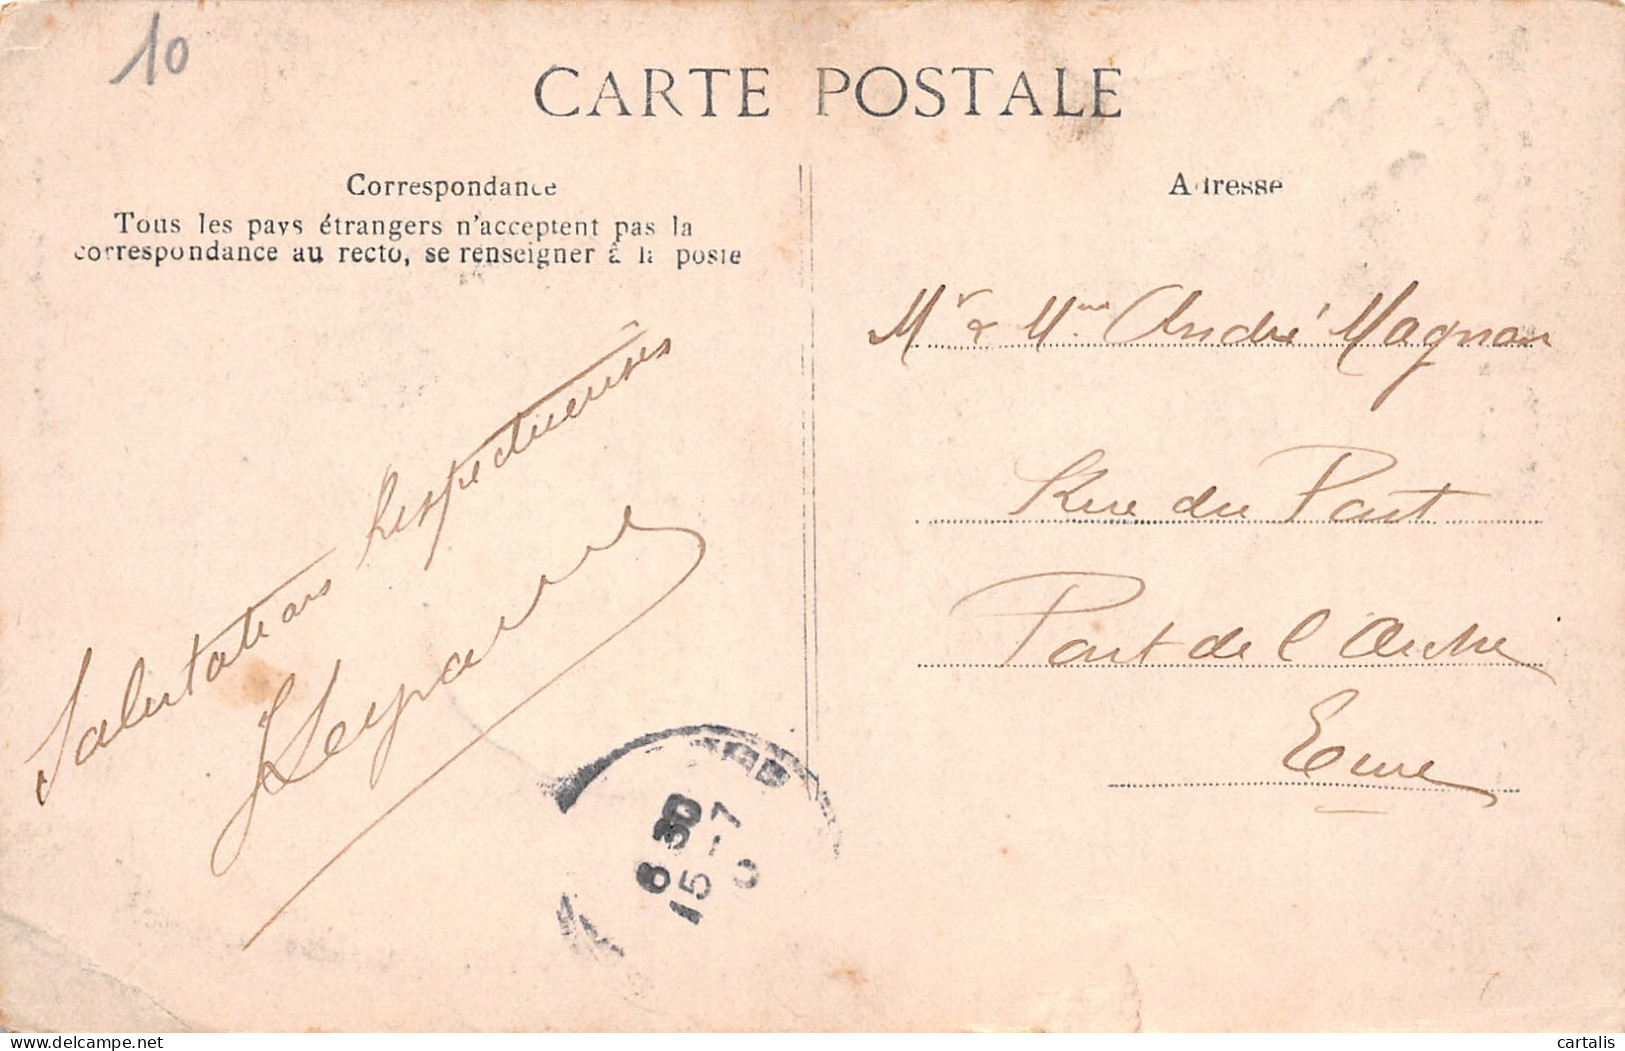 10
CARTE POSTALE
Correspondance
Tous les pays étrangers n'acceptent pas la
correspondance au recto, se renseigner à la poste
Adresse
Mr & Mme André Magnan
Rue du Pont
Pont de l'Arche
Eure
Salutations Respectueuses
8 30
15 - 7
0
cartalis
www.delcampe.net